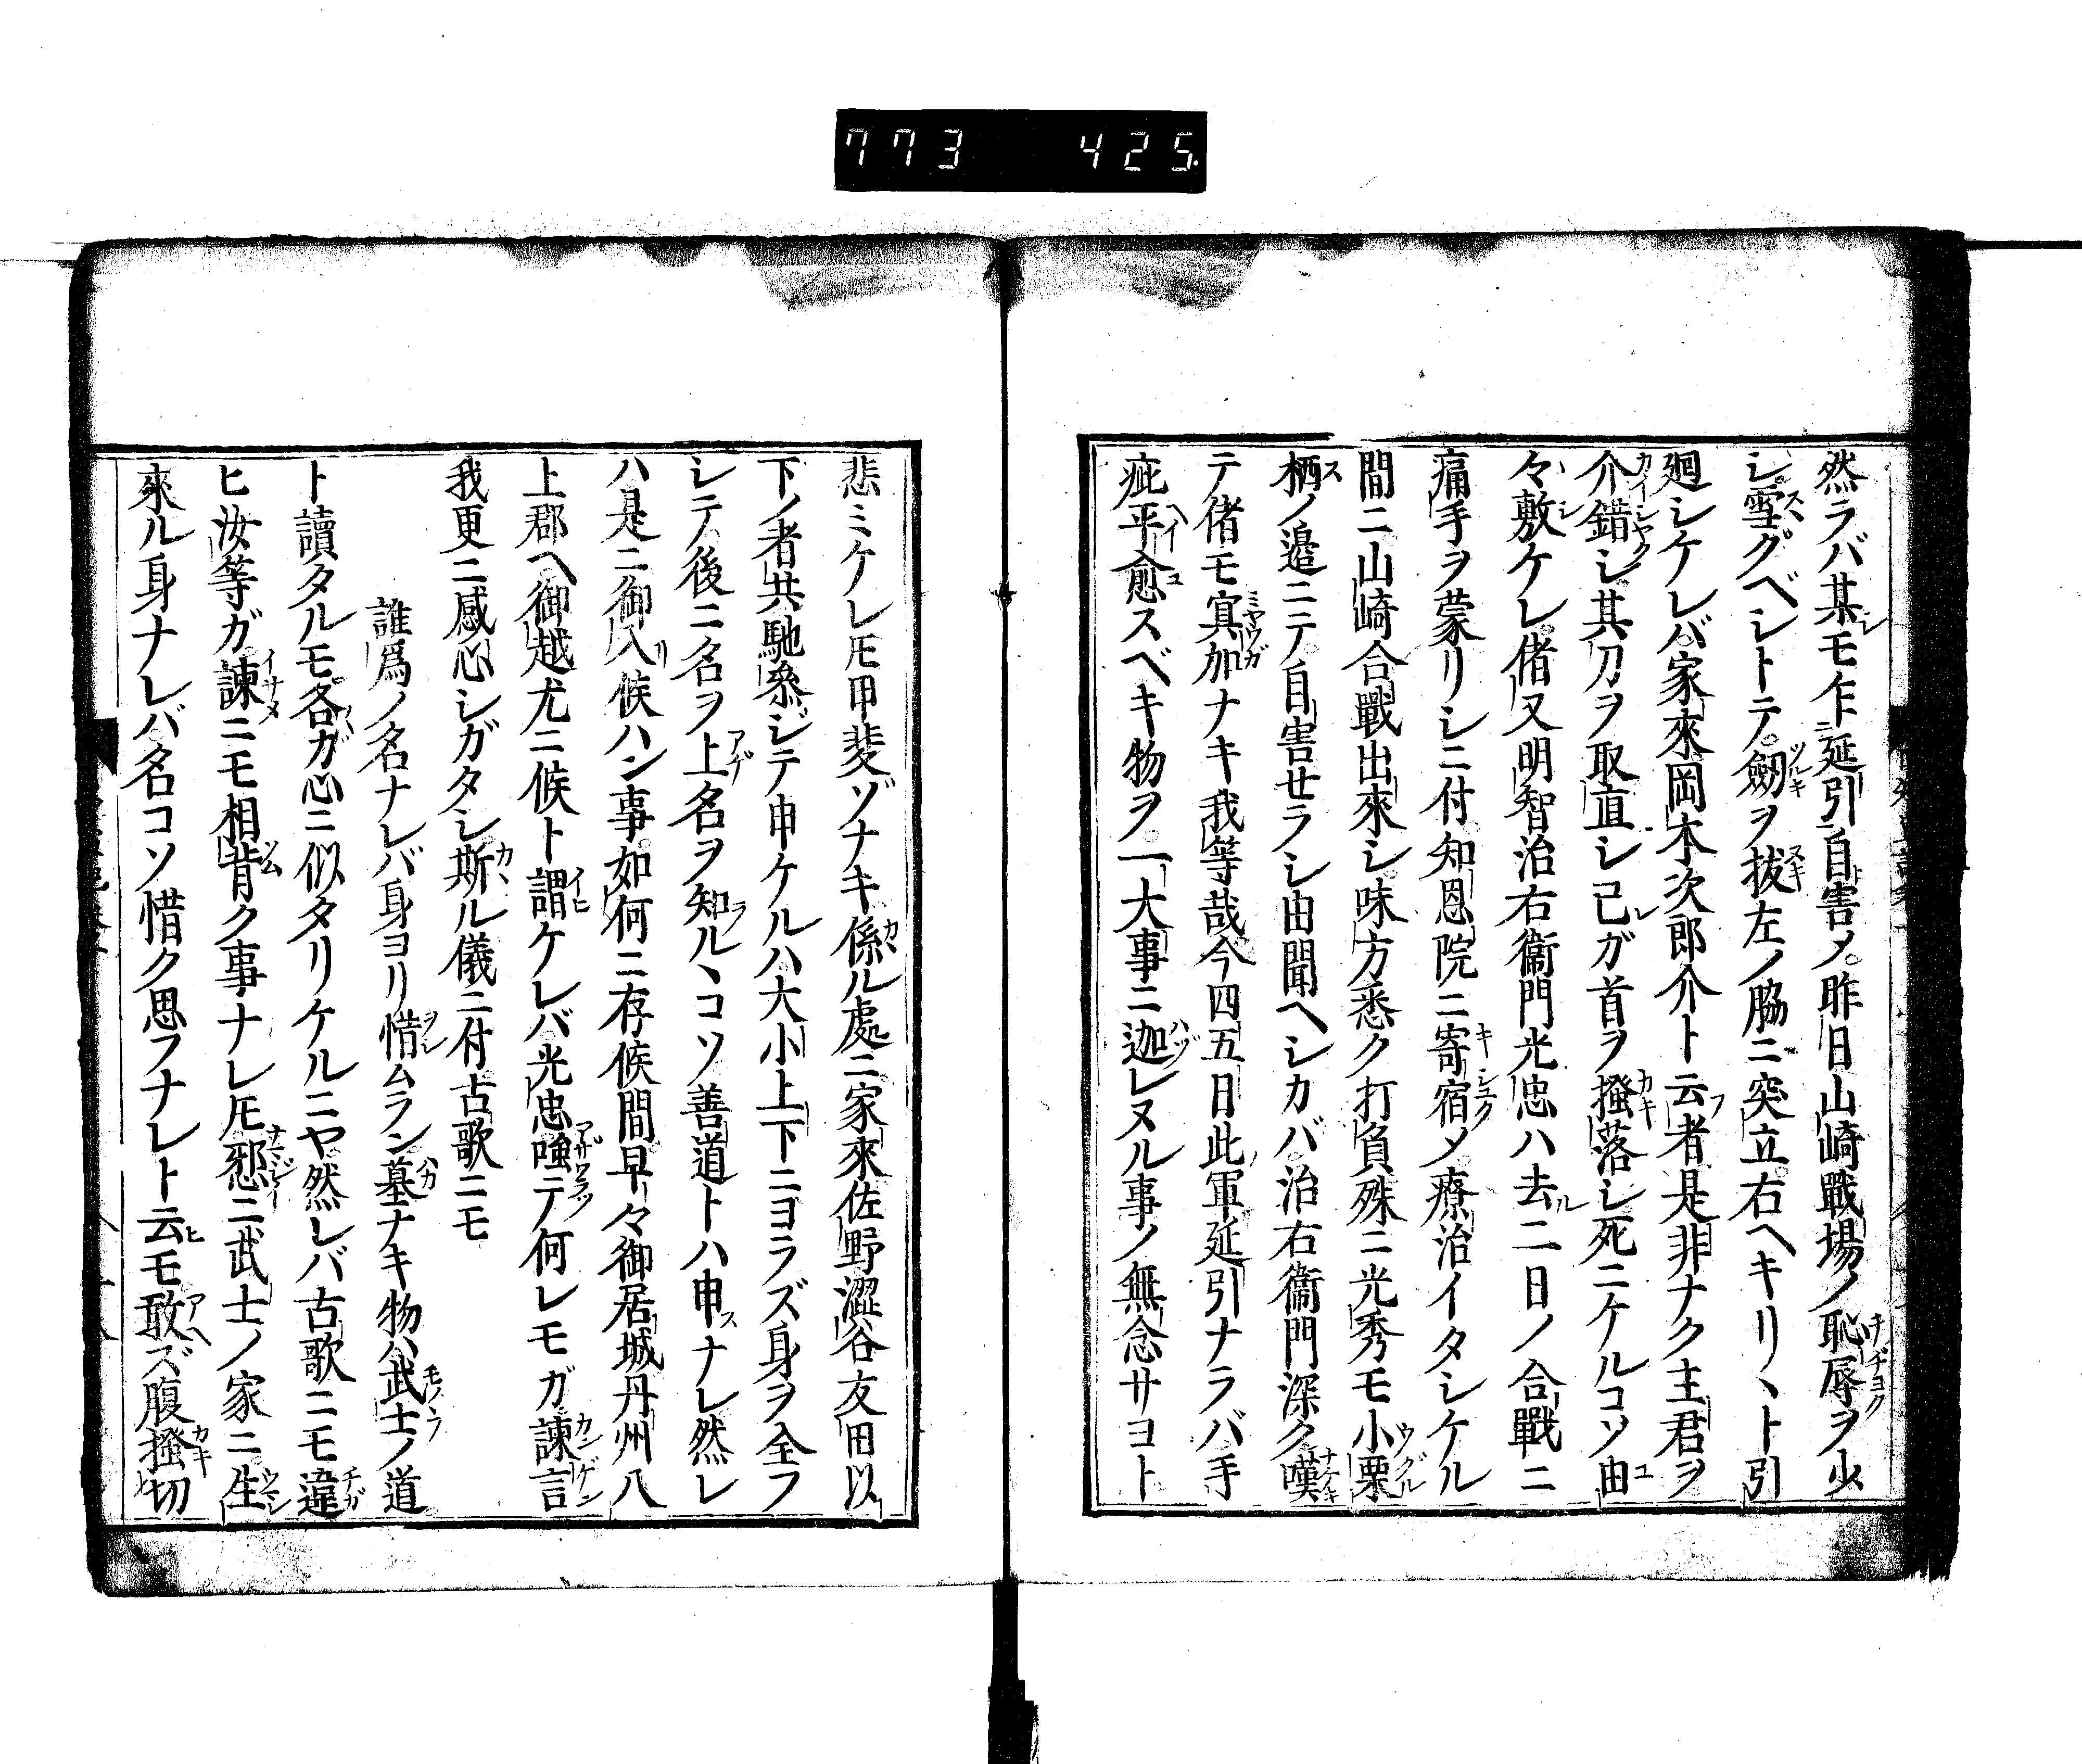 773 425
然ラバ某モ乍延引自害メ。昨日山崎戰場ノ恥辱ヲ少
シ。雪グベシトテ。劔ヲ拔左ノ脇ニ突立右ヘキリヽト引
廻シケレバ。家來岡本次郎介ト云者是非ナク主君ヲ
介錯シ其刀ヲ取直シ己ガ首ヲ搔落シ死ニケルコソ由
々敷ケレ。偖又明智治右衞門光忠ハ去二日ノ合戰ニ
痛手ヲ蒙リシニ付。知恩院ニ寄宿メ。療治イタシケル
間ニ山崎合戰出來シ。味方悉ク打負殊ニ光秀モ小栗
栖ノ邉ニテ。自害せラレシ由聞ヘシカバ。治右衞門深ク嘆
テ偖モ冥加ナキ我等哉今四五日此軍延引ナラバ手
疵平愈スベキ物ヲ。一大事ニ迦レヌル事ノ無念サヨト
悲ミケレ𪜈甲斐ゾナキ係ル處ニ家來佐野澀谷友田以
下ノ者共馳參ジテ申ケルハ大小上下ニヨラズ身ヲ全フ
シテ後ニ名ヲ上名ヲ知ルヽコソ善道トハ申ナレ然レ
ハ是ニ御入候ハン事。如何ニ存候間早々御居城丹州八
上郡ヘ御越尤ニ候ト謂ケレバ。光忠嗤テ何レモガ諫言
我更ニ感心シガタシ斯ル儀ニ付古歌ニモ
誰爲ノ名ナレバ身ヨリ惜ムラン墓ナキ物ハ武士ノ道
ト讀タルモ。各ガ心ニ似タリケルニヤ。然レバ古歌ニモ違
ヒ汝等ガ。諫ニモ相背ク事ナレ𪜈邪ニ武士ノ家ニ生
來ル身ナレバ名コソ惜ク思フナレト云モ敢ズ腹搔切